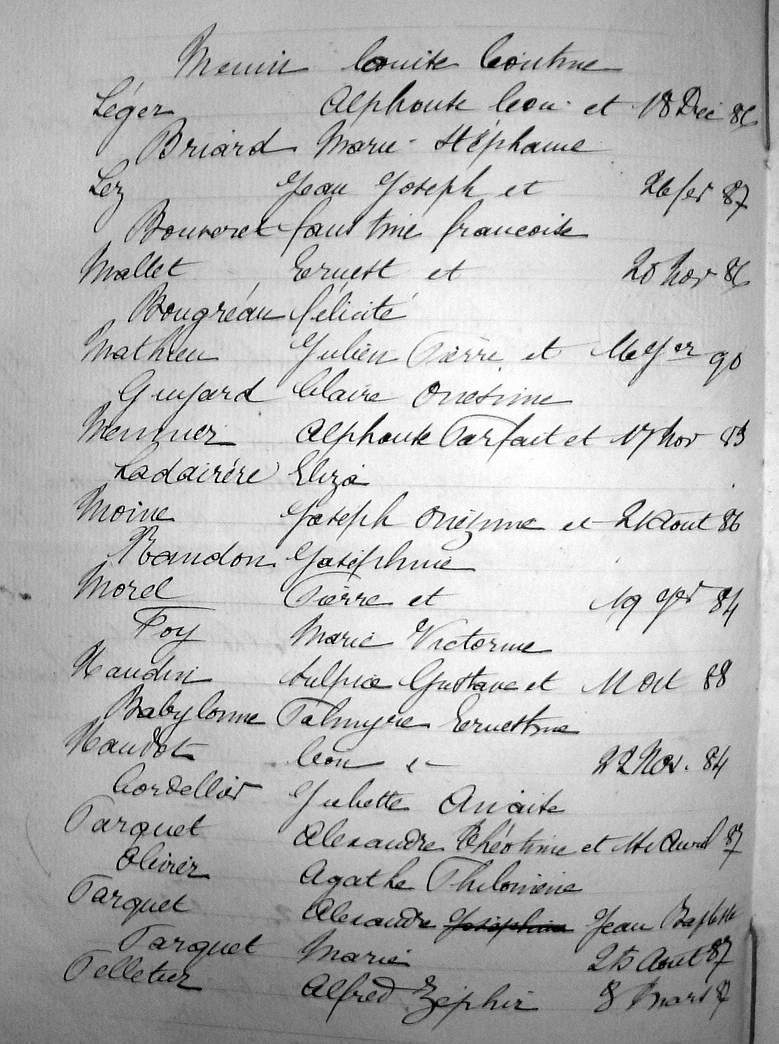 Louise
Léger Alphonse Léon et 18 Dec 86
Briard Marie Stéphanie
Lez Jean Joseph et 26 fer 87
Bouveret faustine francoise
Mallet Ernest et 20 Nov 86
Bougréau félicité
Mathieu Julien Pierre et 90
Guyard Claire Onesime
Meunier Alphonse Parfait et 17 Nov 83
Ladairére Eliza
Moine Joseph Onézime et Aout 86
Baudon Joséphine
Morel Pierre et 19 84
Foy Marie Victorine
Naudin Sulpice Gustave et 11 Oct 88
Babylonne Palmyre Ernestine
Naudot Léon et 22 Nov. 84
Cordellier Juliette Anaise
Parquet Alexandre Théotime et Avril 87
Olivier Agathe Philomène
Parquet Alexandre Joséphine Jean Baptiste
Parquet Marie 25 Aout 87
Pelletier Alfred Zéphir 8 Mars 87